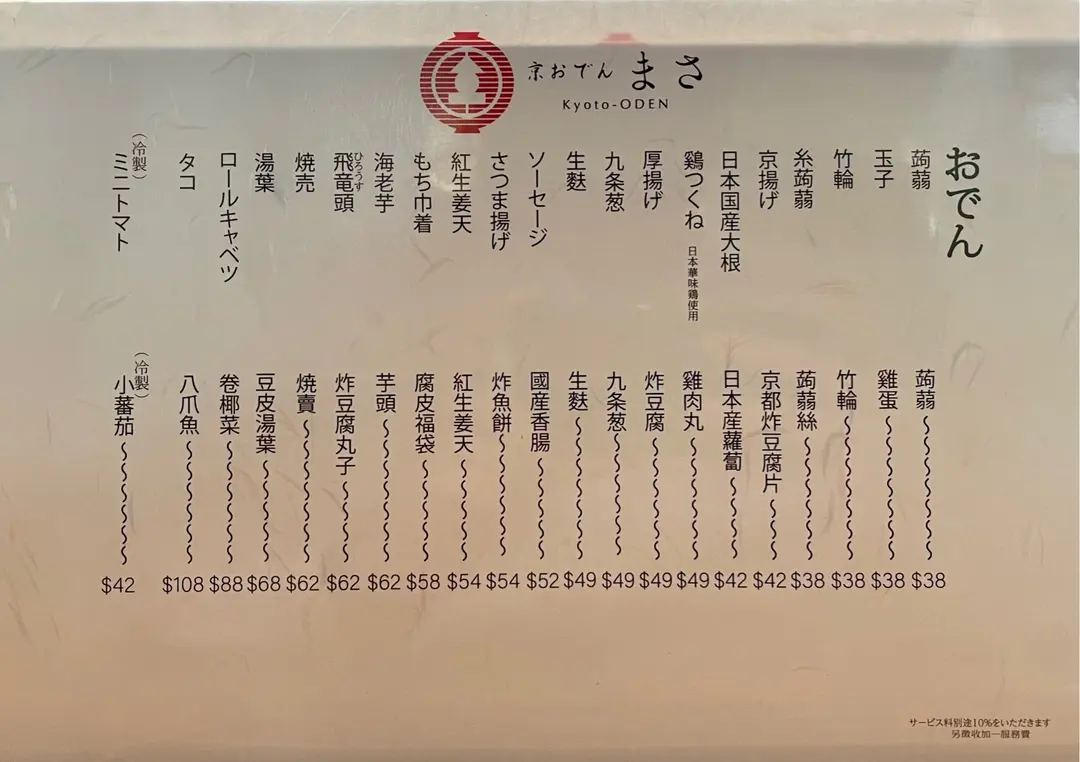 京おでん まさ
Kyoto-ODEN
おでん
蒟蒻
玉子
竹輪
糸蒟蒻
京揚げ
日本国産大根
鶏つくね 日本華味鶏使用
厚揚げ
九条葱
生麩
ソーセージ
さつま揚げ
紅生姜天
もち巾着
海老芋
飛竜頭 ひろうす
焼売
湯葉
ロールキャベツ
タコ
（冷製）
ミニトマト
蒟蒻 $38
雞蛋 $38
竹輪 $38
蒟蒻絲 $38
京都炸豆腐片 $42
日本産蘿蔔 $42
雞肉丸 $49
炸豆腐 $49
九条葱 $49
生麩 $49
國産香腸 $52
炸魚餅 $54
紅生姜天 $54
腐皮福袋 $58
芋頭 $62
炸豆腐丸子 $62
焼賣 $62
豆皮湯葉 $68
卷椰菜 $88
八爪魚 $108
（冷製）
小蕃茄 $42
サービス料別途10%をいただきます
另徴收加一服務費